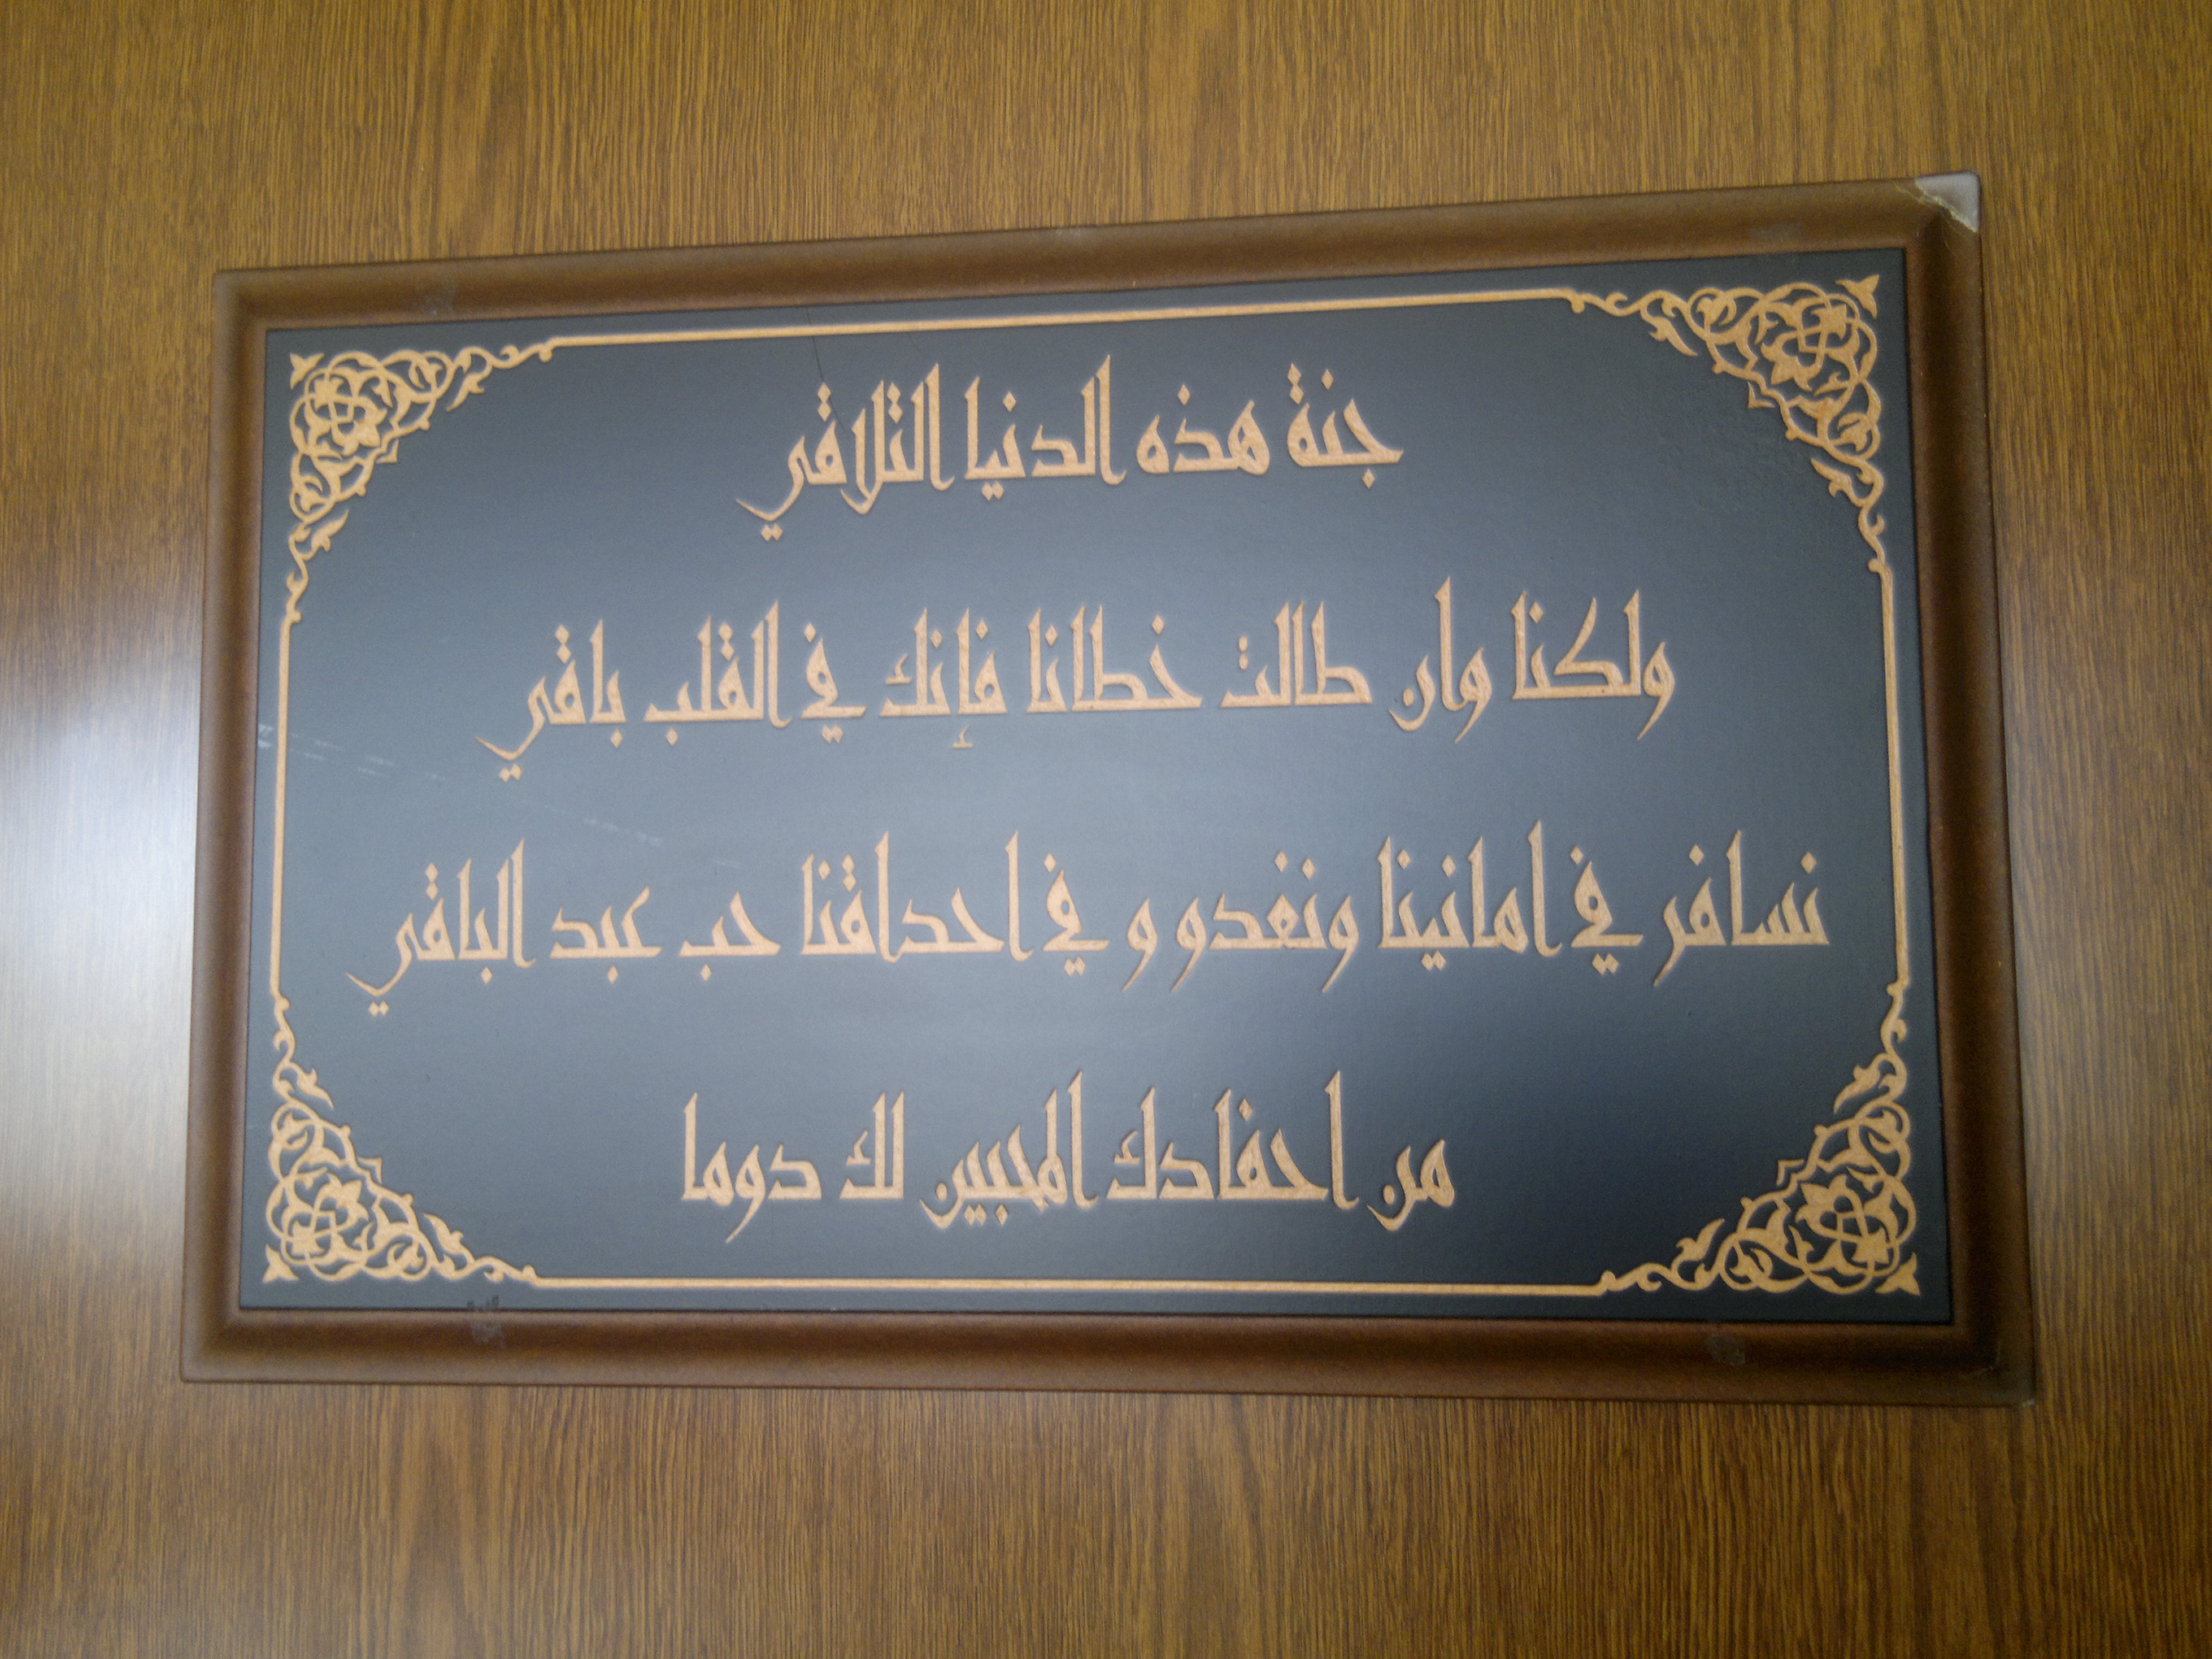 جنة هذه الدنيا التلاقي
ولكنا وان طالت خطانا فإنك في القلب باقي
نسافر في امانينا ونغدو و في احداقنا حب عبد الباقي
من احفادك المحبين لك دوما